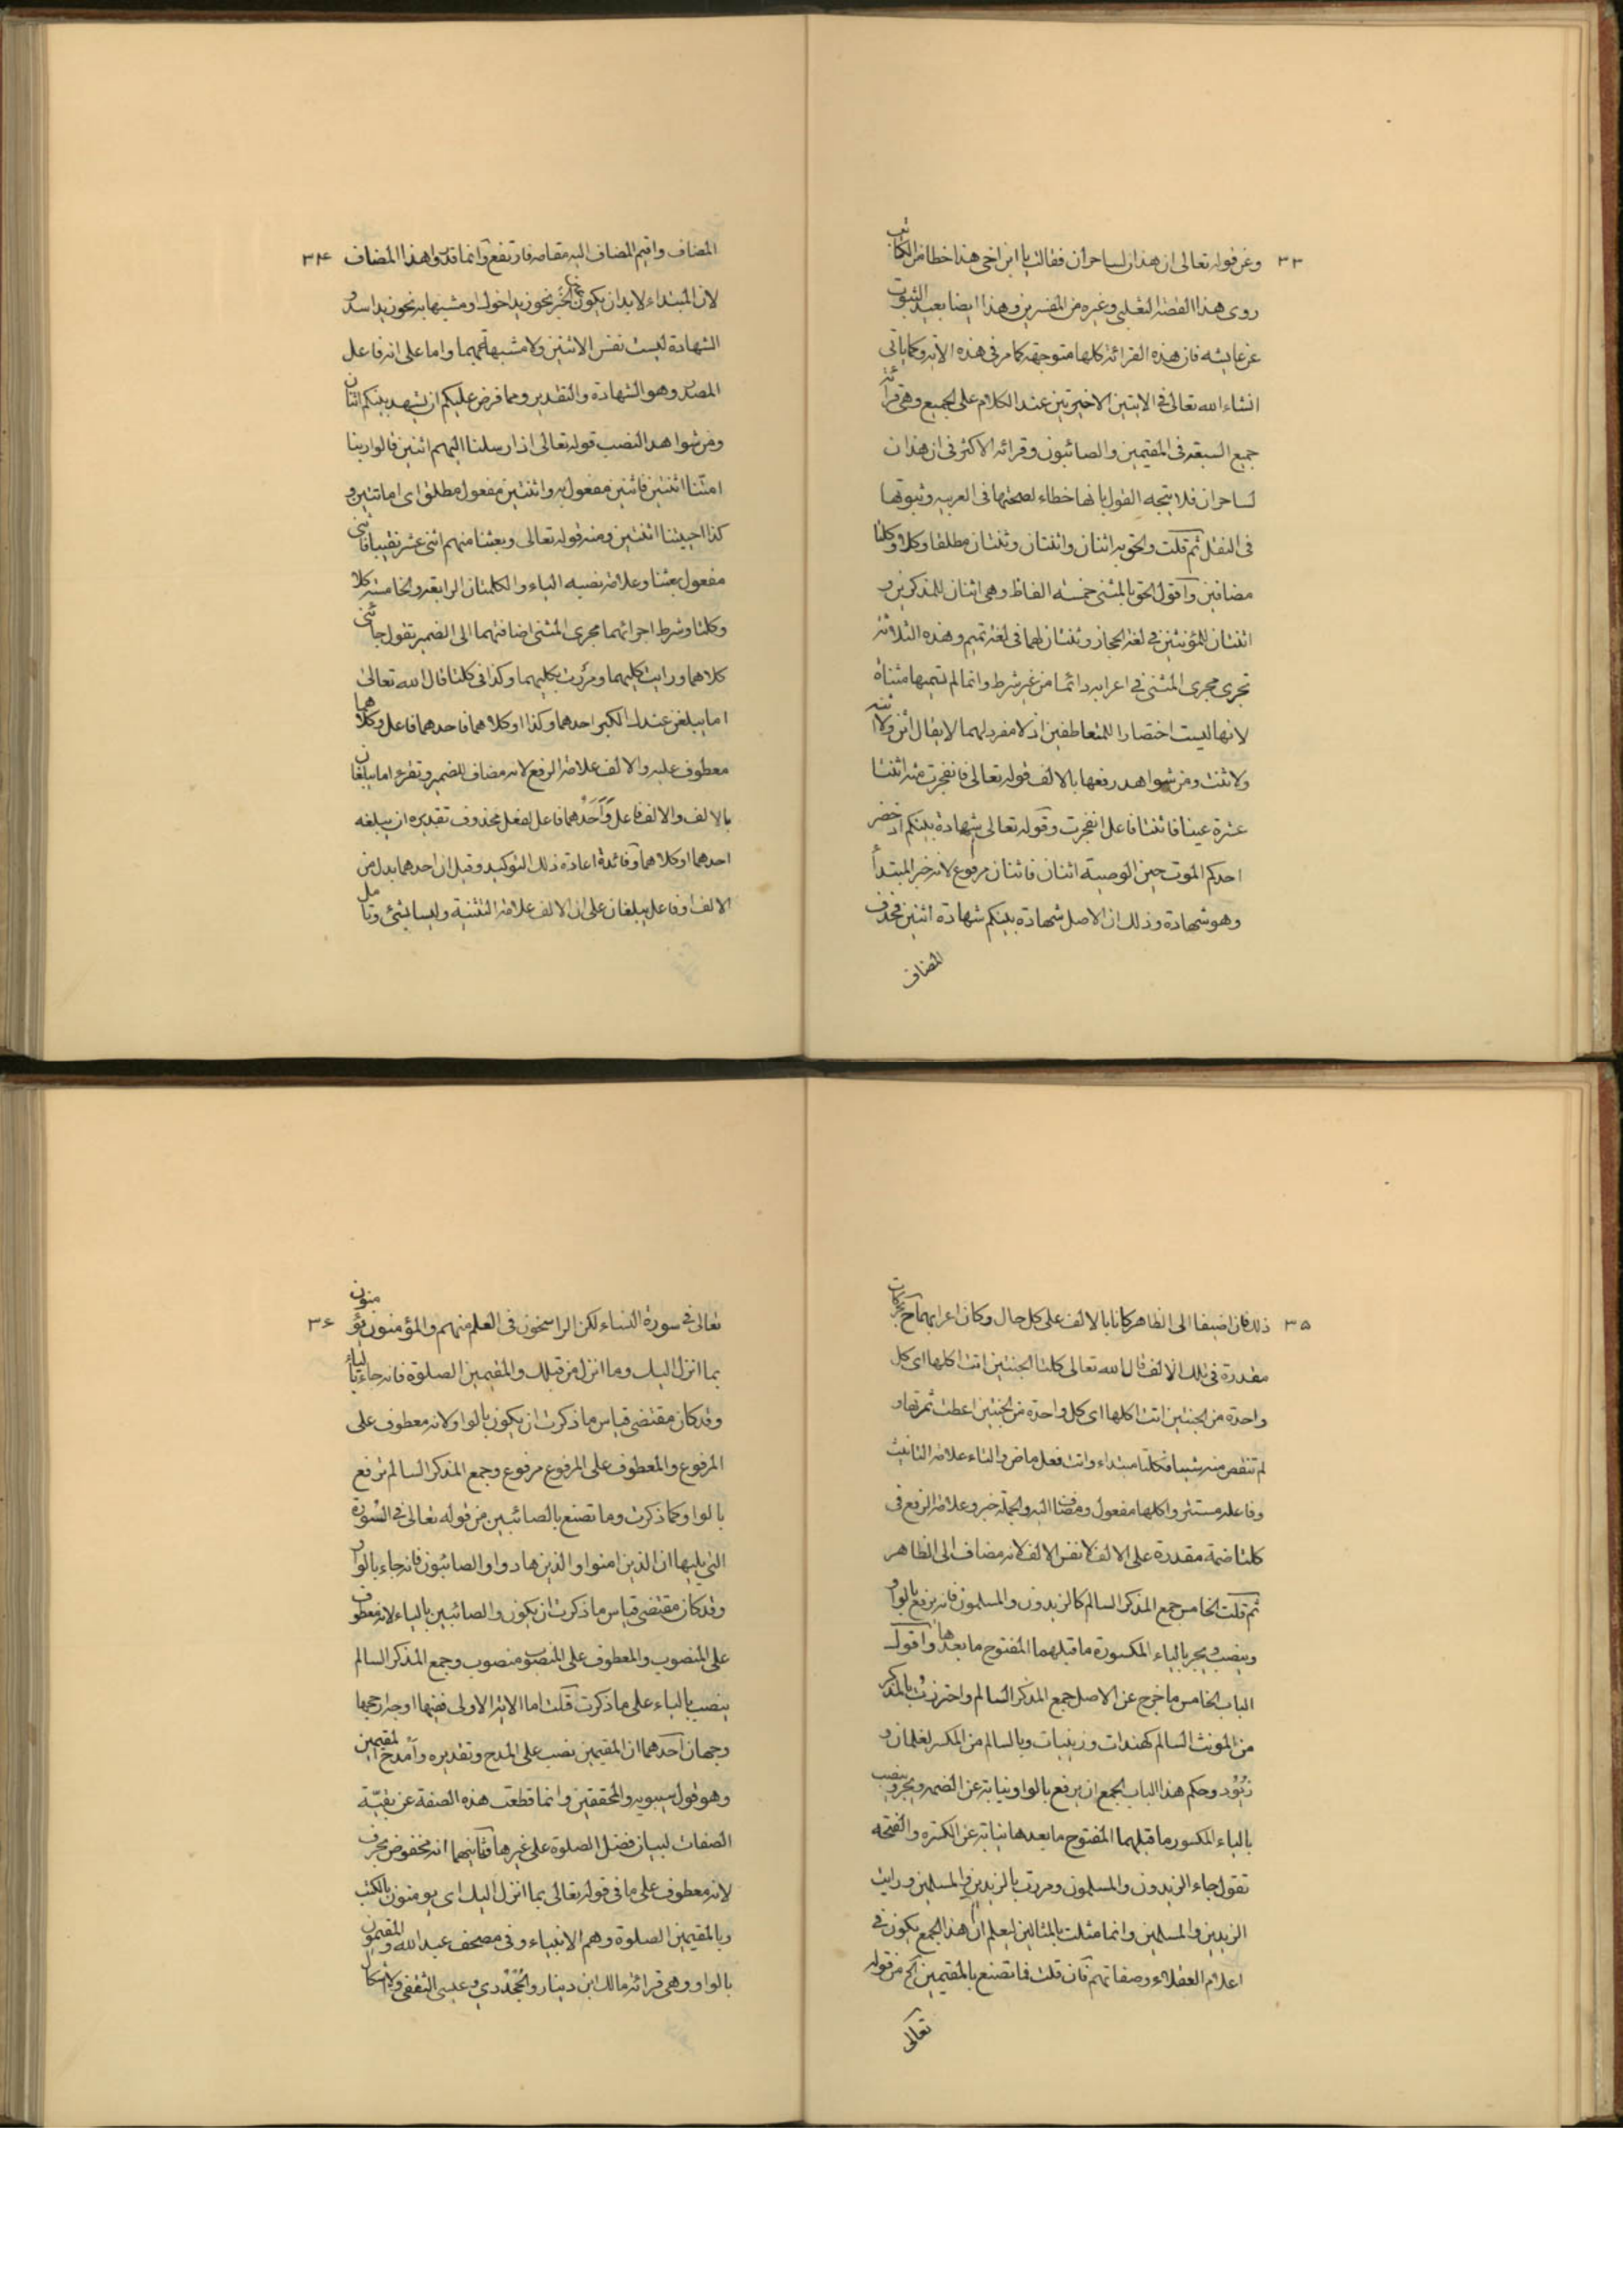 ۳۳
وعن قوله تعالى ان هذان لساحران فقالت يا ابن اخى هذا خطا من الكاتب
روى هذا القصة الثعلبى وغيره من المفسرين وهذا ايضا بعيد الثبوت
عن عايشه فان هذه القرائة كلها متوجهة كما مر فى هذه الآية وكما ياتى
انشاء الله تعالى فى الايتين الاخيرتين عند الكلام على الجمع وهى قرائة
جميع السبعة فى المقيمين والصائبون وقرائة الاكثر فى ان هذان
لساحران فلا يتجه القول بانها خطاء لصحتها فى العربيه وثبوتها
فى النقل ثم قلت والحق به اثنان واثنتان وثنتان مطلقا وكلا وكلتا
مضافين واقول الحق بالمثنى خمسة الفاظ وهى اثنان للمذكرين و
اثنتان للمؤنثتين فى لغة الحجاز وثنتان لهما فى لغة تميم وهذه الثلاثة
تجرى مجرى المثنى فى اعرابه دائما من غير شرط وانما لم نسمها مثناة
لانها ليست اختصارا للمتعاطفين اذ لا مفرد لهما لا يقال اثن ولا اثنة
ولا ثنت ومن شواهد رفعها بالالف قوله تعالى فانفجرت منه اثنتا
عشرة عينا فاثنتا فاعل انفجرت وقوله تعالى شهادة بينكم اذا حضر
احدكم الموت حين الوصية اثنان فاثنان مرفوع لانه خبر المبتدأ
وهو شهادة وذلك ان الاصل شهادة بينكم شهادة اثنين فحذف
المضاف
۳۴
المضاف واقيم المضاف اليه مقامه فارتفع وانما قدروا هذا المضاف
لان المبتداء لابد ان يكون عين الخبر نحو زيد اخوك او مشبها به نحو زيد اسد و
الشهادة ليست نفس الاثنين ولا مشبهة بهما واما على انه فاعل
المصدر وهو الشهادة والتقدير ومما فرض عليكم ان يشهد بينكم اثنان
ومن شواهد النصب قوله تعالى اذ ارسلنا اليهم اثنين قالوا ربنا
امتنا اثنتين فاثنين مفعول به واثنتين مفعول مطلق اى اماتتين و
كذا احييتنا اثنتين ومنه قوله تعالى وبعثنا منهم اثنى عشر نقيبا فاثنى
مفعول بعثنا وعلامة نصبه الياء والكلمتان الرابعة والخامسة كلا
وكلتا وشرط اجرائهما مجرى المثنى اضافتهما الى الضمير تقول جائنى
كلاهما ورايت كليهما ومررت بكليهما وكذا فى كلتا قال الله تعالى
اما يبلغن عندك الكبر احدهما وكذا او كلاهما فاحدهما فاعل وكلاهما
معطوف عليه والالف علامة الرفع لانه مضاف للضمير وتقرء اما يبلغان
بالالف والالف فاعل وَاَحَدُهما فاعل لفعل محذوف تقديره ان يبلغه
احدهما او كلاهما وفائدة اعادة ذلك التوكيد وقيل ان احدهما بدل من
الالف او فاعل يبلغان على ان الالف علامة التثنية وليسا بشئ وتامل
۳۵
ذلك فان اضيفا الى الظاهر كانا بالالف على كل حال وكان اعرابهما ح بحركات
مقدرة فى تلك الالف قال الله تعالى كلتا الجنتين اتت اكلها اى كل
واحدة من الجنتين اتت اكلها اى كل واحدة من الجنتين اعطت ثمرتها و
لم تنقص منه شيئا فكلتا مبتداء واتت فعل ماض والتاء علامة التانيث
وفاعله مستتر واكلها مفعول ومضاف اليه والجملة خبر وعلامة الرفع فى
كلتا ضمة مقدرة على الالف لا نفس الالف لانه مضاف الى الظاهر
ثم قلت الخامس جمع المذكر السالم كالزيدون والمسلمون فانه يرفع بالواو
وينصب ويجر بالياء المكسورة ما قبلهما المفتوح ما بعدها واقول
الباب الخامس ما خرج عن الاصل جمع المذكر السالم واحترزت بالمذكر
من المونث السالم كهندات وزينبات وبالسالم من المكسر لغلمان و
زيُوُد وحكم هذا الباب الجمع ان يرفع بالواو نيابة عن الضمه ويجر وينصب
بالياء المكسور ما قبلهما المفتوح ما بعدها نيابة عن الكسره والفتحه
تقول جاء الزيدون والمسلمون ومررت بالزيدين والمسلمين ورايت
الزيدين والمسلمين وانما مثلت بالمثالين ليعلم ان هذا الجمع يكون فى
اعلام العقلاء وصفاتهم فان قلت فما تصنع بالمقيمين الخ من قوله
تعالى
۳۶
تعالى فى سورة النساء لكن الراسخون فى العلم منهم والمؤمنون يؤمنون
بما انزل اليك وما انزل من قبلك والمقيمين الصلوة فانه جاء بالياء
وقد كان مقتضى قياس ما ذكرت ان يكون بالواو لانه معطوف على
المرفوع والمعطوف على المرفوع مرفوع وجمع المذكر السالم يرفع
بالواو كما ذكرت وما تصنع بالصائبين من قوله تعالى فى السورة
التى يليها ان الذين امنوا والذين هادوا والصائبون فانه جاء بالواو
وقد كان مقتضى قياس ما ذكرت ان يكون والصائبين بالياء لانه معطوف
على المنصوب والمعطوف على المنصوب منصوب وجمع المذكر السالم
ينصب بالياء على ما ذكرت قلت اما الاية الاولى ففيها اوجه ارجحها
وجهان احدهما ان المقيمين نصب على المدح وتقديره وامدح المقيمين
وهو قول سيبويه والمحققين وانما قطعت هذه الصفة عن بقيّة
الصفات لبيان فضل الصلوة على غيرها وثانيهما انه مخفوض بحرف
لانه معطوف على ما فى قوله تعالى بما انزل اليك اى يومنون بالكتب
وبالمقيمين الصلوة وهم الانبياء وفى مصحف عبد الله والمقيمون
بالواو وهى قرائة مالك ابن دينار والجُحْدُرى وعيسى الثقفى ولا اشكال